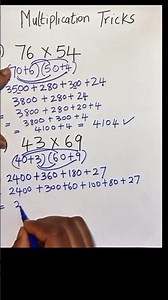 Multiplication Tricks
76 × 54
(70+6)(50+4)
3500 + 280 + 300 + 24
3800 + 280 + 24
= 3800 + 280 + 20 + 4
= 3800 + 300 + 4
= 4100 + 4 = 4104 ✓
43 × 69
(40+3)(60+9)
2400 + 360 + 180 + 27
2400 + 300 + 60 + 100 + 80 + 27
= 2